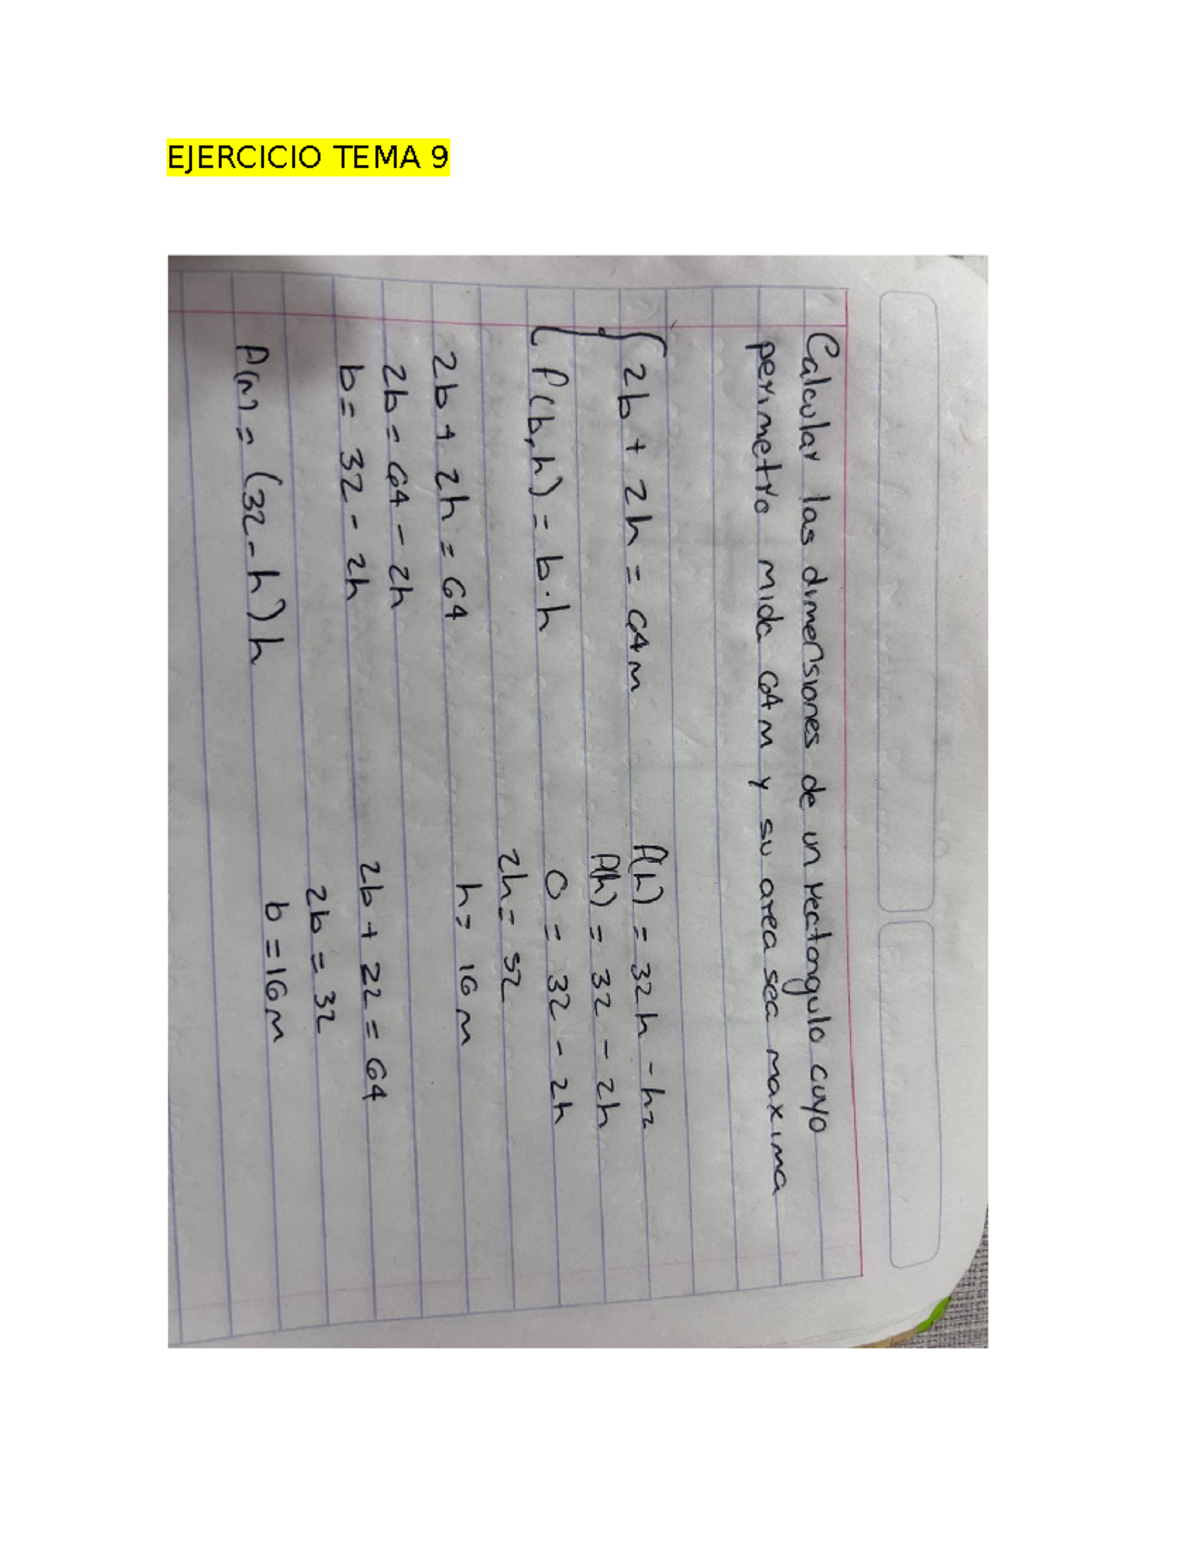 EJERCICIO TEMA 9
Calcular las dimensiones de un rectangulo cuyo
perimetro mida 64m y su area sea maxima
2b + 2h = 64m
A(b,h) = b·h
2b + 2h = 64
2b = 64 - 2h
b = 32 - 2h
A(h) = (32-h)h
A(h) = 32h - h2
A(h) = 32 - 2h
0 = 32 - 2h
2h = 32
h = 16 m
2b + 22 = 64
2b = 32
b = 16m